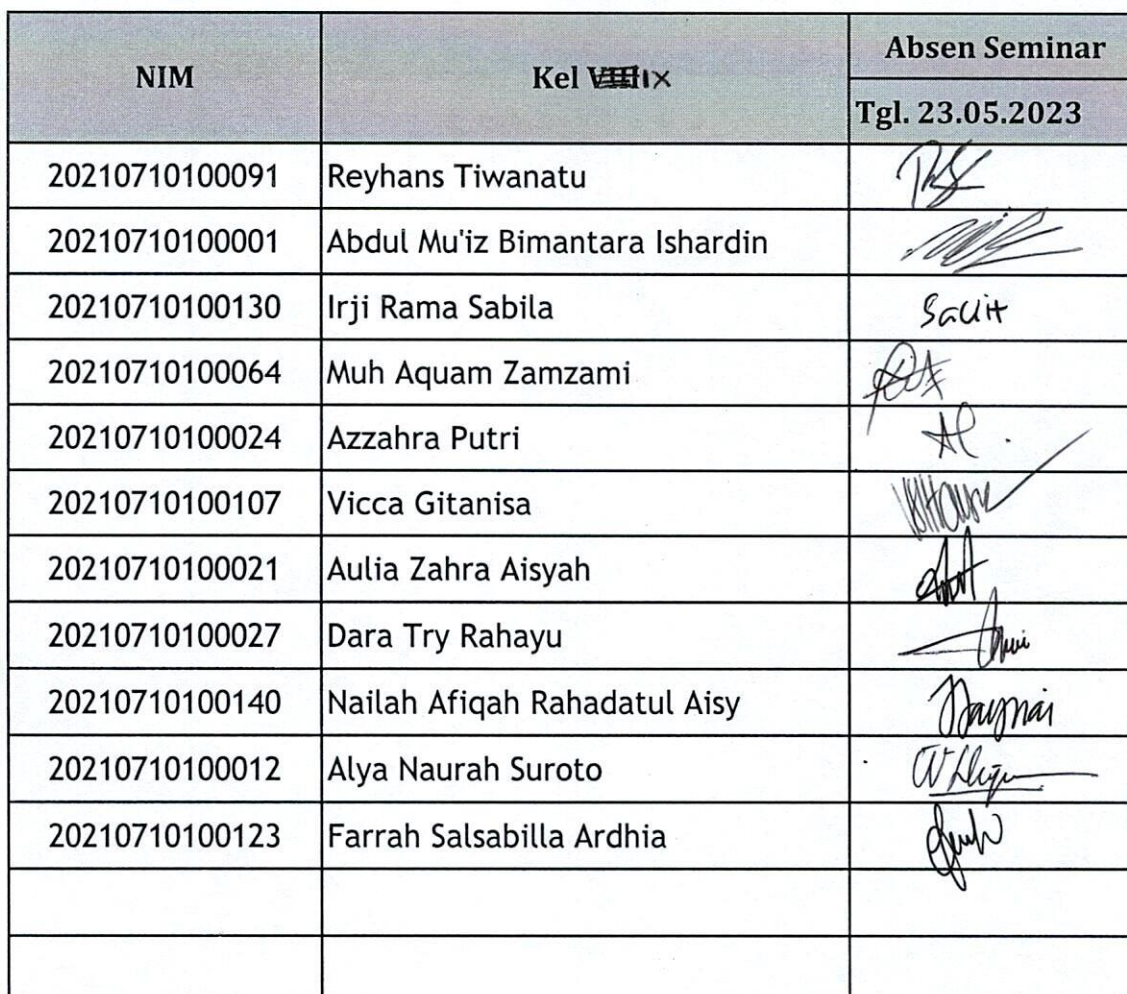 NIM Kel IX Absen Seminar
Tgl. 23.05.2023
20210710100091 Reyhans Tiwanatu
20210710100001 Abdul Mu'iz Bimantara Ishardin
20210710100130 Irji Rama Sabila Sakit
20210710100064 Muh Aquam Zamzami
20210710100024 Azzahra Putri
20210710100107 Vicca Gitanisa
20210710100021 Aulia Zahra Aisyah
20210710100027 Dara Try Rahayu
20210710100140 Nailah Afiqah Rahadatul Aisy
20210710100012 Alya Naurah Suroto
20210710100123 Farrah Salsabilla Ardhia